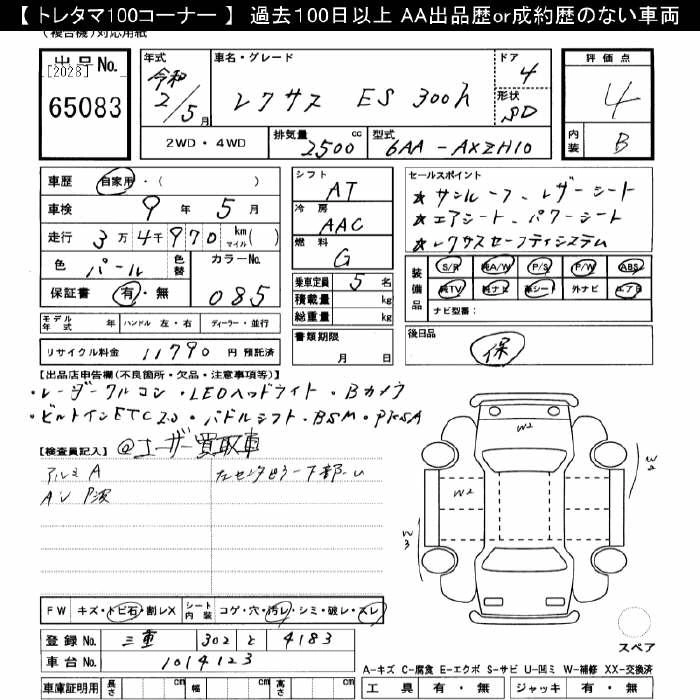 【 トレタマ100コーナー 】 過去100日以上 AA出品歴or成約歴のない車両
(複合機)対応用紙
出品No.
[2028]
65083
年式
令和
2/5月
車名・グレード
レクサス ES 300h
ドア
4
形状
SD
評価点
4
内装
B
2WD・4WD
排気量
2500 cc
型式
6AA-AXZH10
車歴 自家用・( )
車検 9年 5月
走行 3万4千970 km マイル( )
色 パール 色替 カラーNo. 085
保証書 有・無
モデル年式 年 ハンドル 左・右 ディーラー・並行
リサイクル料金 11790 円 預託済
シフト AT
冷房 AAC
燃料 G
乗車定員 5 名
積載量 kg
総重量 kg
書類期限
月 日
セールスポイント
★サンルーフ・レザーシート
★エアシート・パワーシート
★レクサスセーフティシステム
装備品
S/R 純A/W P/S P/W ABS
純TV 純ナビ 革シート 外ナビ エアB
ナビ型番:
後日品
保
【出品店申告欄(不良箇所・欠品・注意事項等)】
・レーダークルコン・LEDヘッドライト・Bカメラ
・ビルトインETC2.0・パドルシフト・BSM・PKSA
【検査員記入】 @ユーザー買取車
アルミA
左センタピラー下部
W2
W2
W2
W3
FW キズ・トビ石・割レX シート内装 コゲ・穴・汚レ・シミ・破レ・スレ
登録No. 三重 302 と 4183
車台No. 1014123
車庫証明用 長さ cm 幅 cm 高さ cm
スペア
A-キズ C-腐食 E-エクボ S-サビ U-凹ミ W-補修 XX-交換済
工具 有・無 ジャッキ 有・無